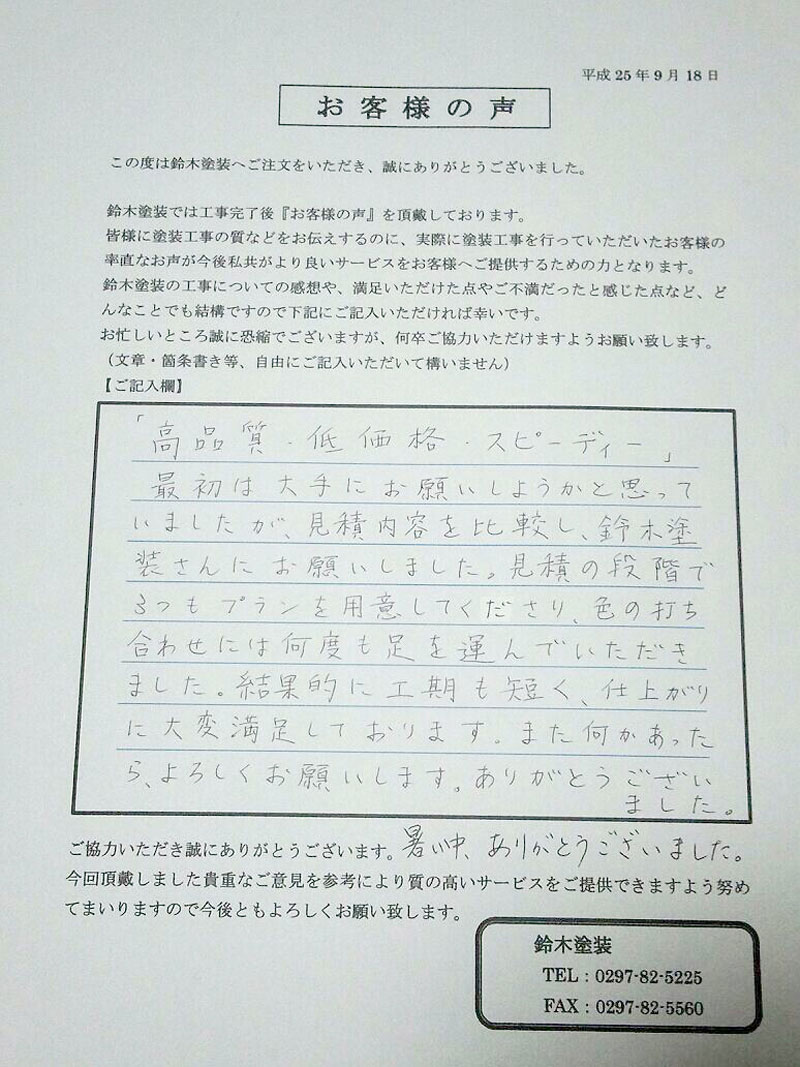 平成 25 年 9 月 18 日
お客様の声
この度は鈴木塗装へご注文をいただき、誠にありがとうございました。
鈴木塗装では工事完了後『お客様の声』を頂戴しております。
皆様に塗装工事の質などをお伝えするのに、実際に塗装工事を行っていただいたお客様の
率直なお声が今後私共がより良いサービスをお客様へご提供するための力となります。
鈴木塗装の工事についての感想や、満足いただけた点やご不満だったと感じた点など、ど
んなことでも結構ですので下記にご記入いただければ幸いです。
お忙しいところ誠に恐縮でございますが、何卒ご協力いただけますようお願い致します。
（文章・箇条書き等、自由にご記入いただいて構いません）
【ご記入欄】
「高品質・低価格・スピーディー」
最初は大手にお願いしようかと思って
いましたが、見積内容を比較し、鈴木塗
装さんにお願いしました。見積の段階で
3つもプランを用意してくださり、色の打ち
合わせには何度も足を運んでいただき
ました。結果的に工期も短く、仕上がり
に大変満足しております。また何かあった
ら、よろしくお願いします。ありがとうござい
ました。
ご協力いただき誠にありがとうございます。暑い中、ありがとうございました。
今回頂戴しました貴重なご意見を参考により質の高いサービスをご提供できますよう努め
てまいりますので今後ともよろしくお願い致します。
鈴木塗装
TEL：0297-82-5225
FAX：0297-82-5560